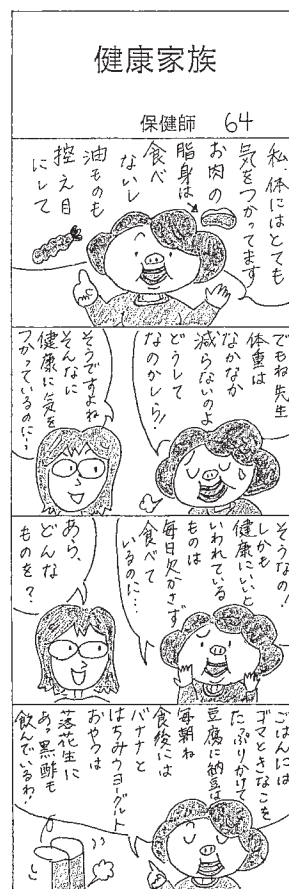 健康家族
保健師 64
私、体にはとても
気をつかってます
お肉の
脂身は
食べ
ないし
油ものも
控え目
にして
でもね先生
体重は
なかなか
減らないのよ
どうして
なのかしら!!
そうですよね
そんなに
健康に気を
つかっているのに…
そうなの!
しかも
健康にいいと
いわれている
ものは
毎日欠かさず
食べて
いるのに…
あら、
どんな
ものを?
ごはんには
ゴマときなこを
たっぷりかけて
豆腐に納豆は
毎朝ね
食後には
バナナと
はちみつヨーグルト
おやつは
落花生に
あっ黒酢も
飲んでいるわ!